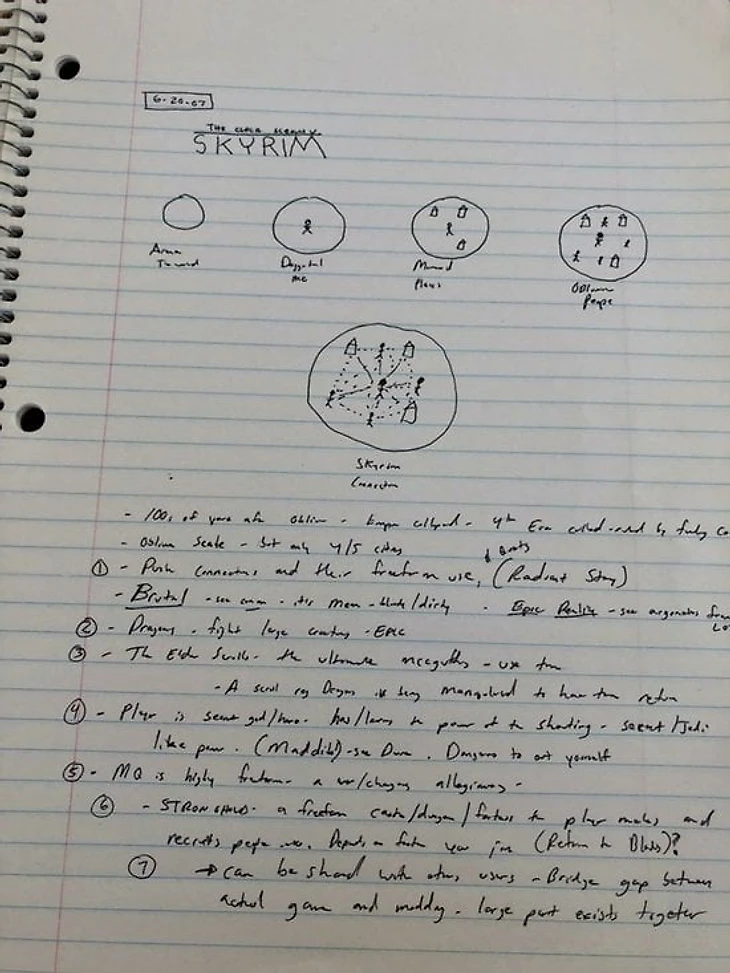 6-20-07
THE ELDER SCROLLS V
SKYRIM
Arena
Daggerfall
me
Morrowind
Places
Oblivion
People
Skyrim
Connection
- 100s of years after Oblivion - Empire collapsed - 4th Era called - ruled by
- Oblivion Scale - but only 4/5 cities
& Events
① - Push Connections and their freeform use, (Radiant Story)
- Brutal - see - its mean - /dirty - Epic Reality - see
② - Dragons - fight large creatures - EPIC
③ - The Elder Scrolls - the ultimate - use
- A scroll Dragons is being to have them return
④ - Player is secret god/hero - has/learns the power of the shouting - secret/Jedi
like power. (Maddib) - see Dune. Dangerous to yourself
⑤ - MQ is highly freeform - a war/changing -
⑥ - STRONGHOLDS - a freeform castle/dungeon/fortress the player makes and
recruits people. Depends on faction you join (Return to Blades)?
⑦ → can be shared with other users - Bridge gap between
actual game and modding - large part exists together